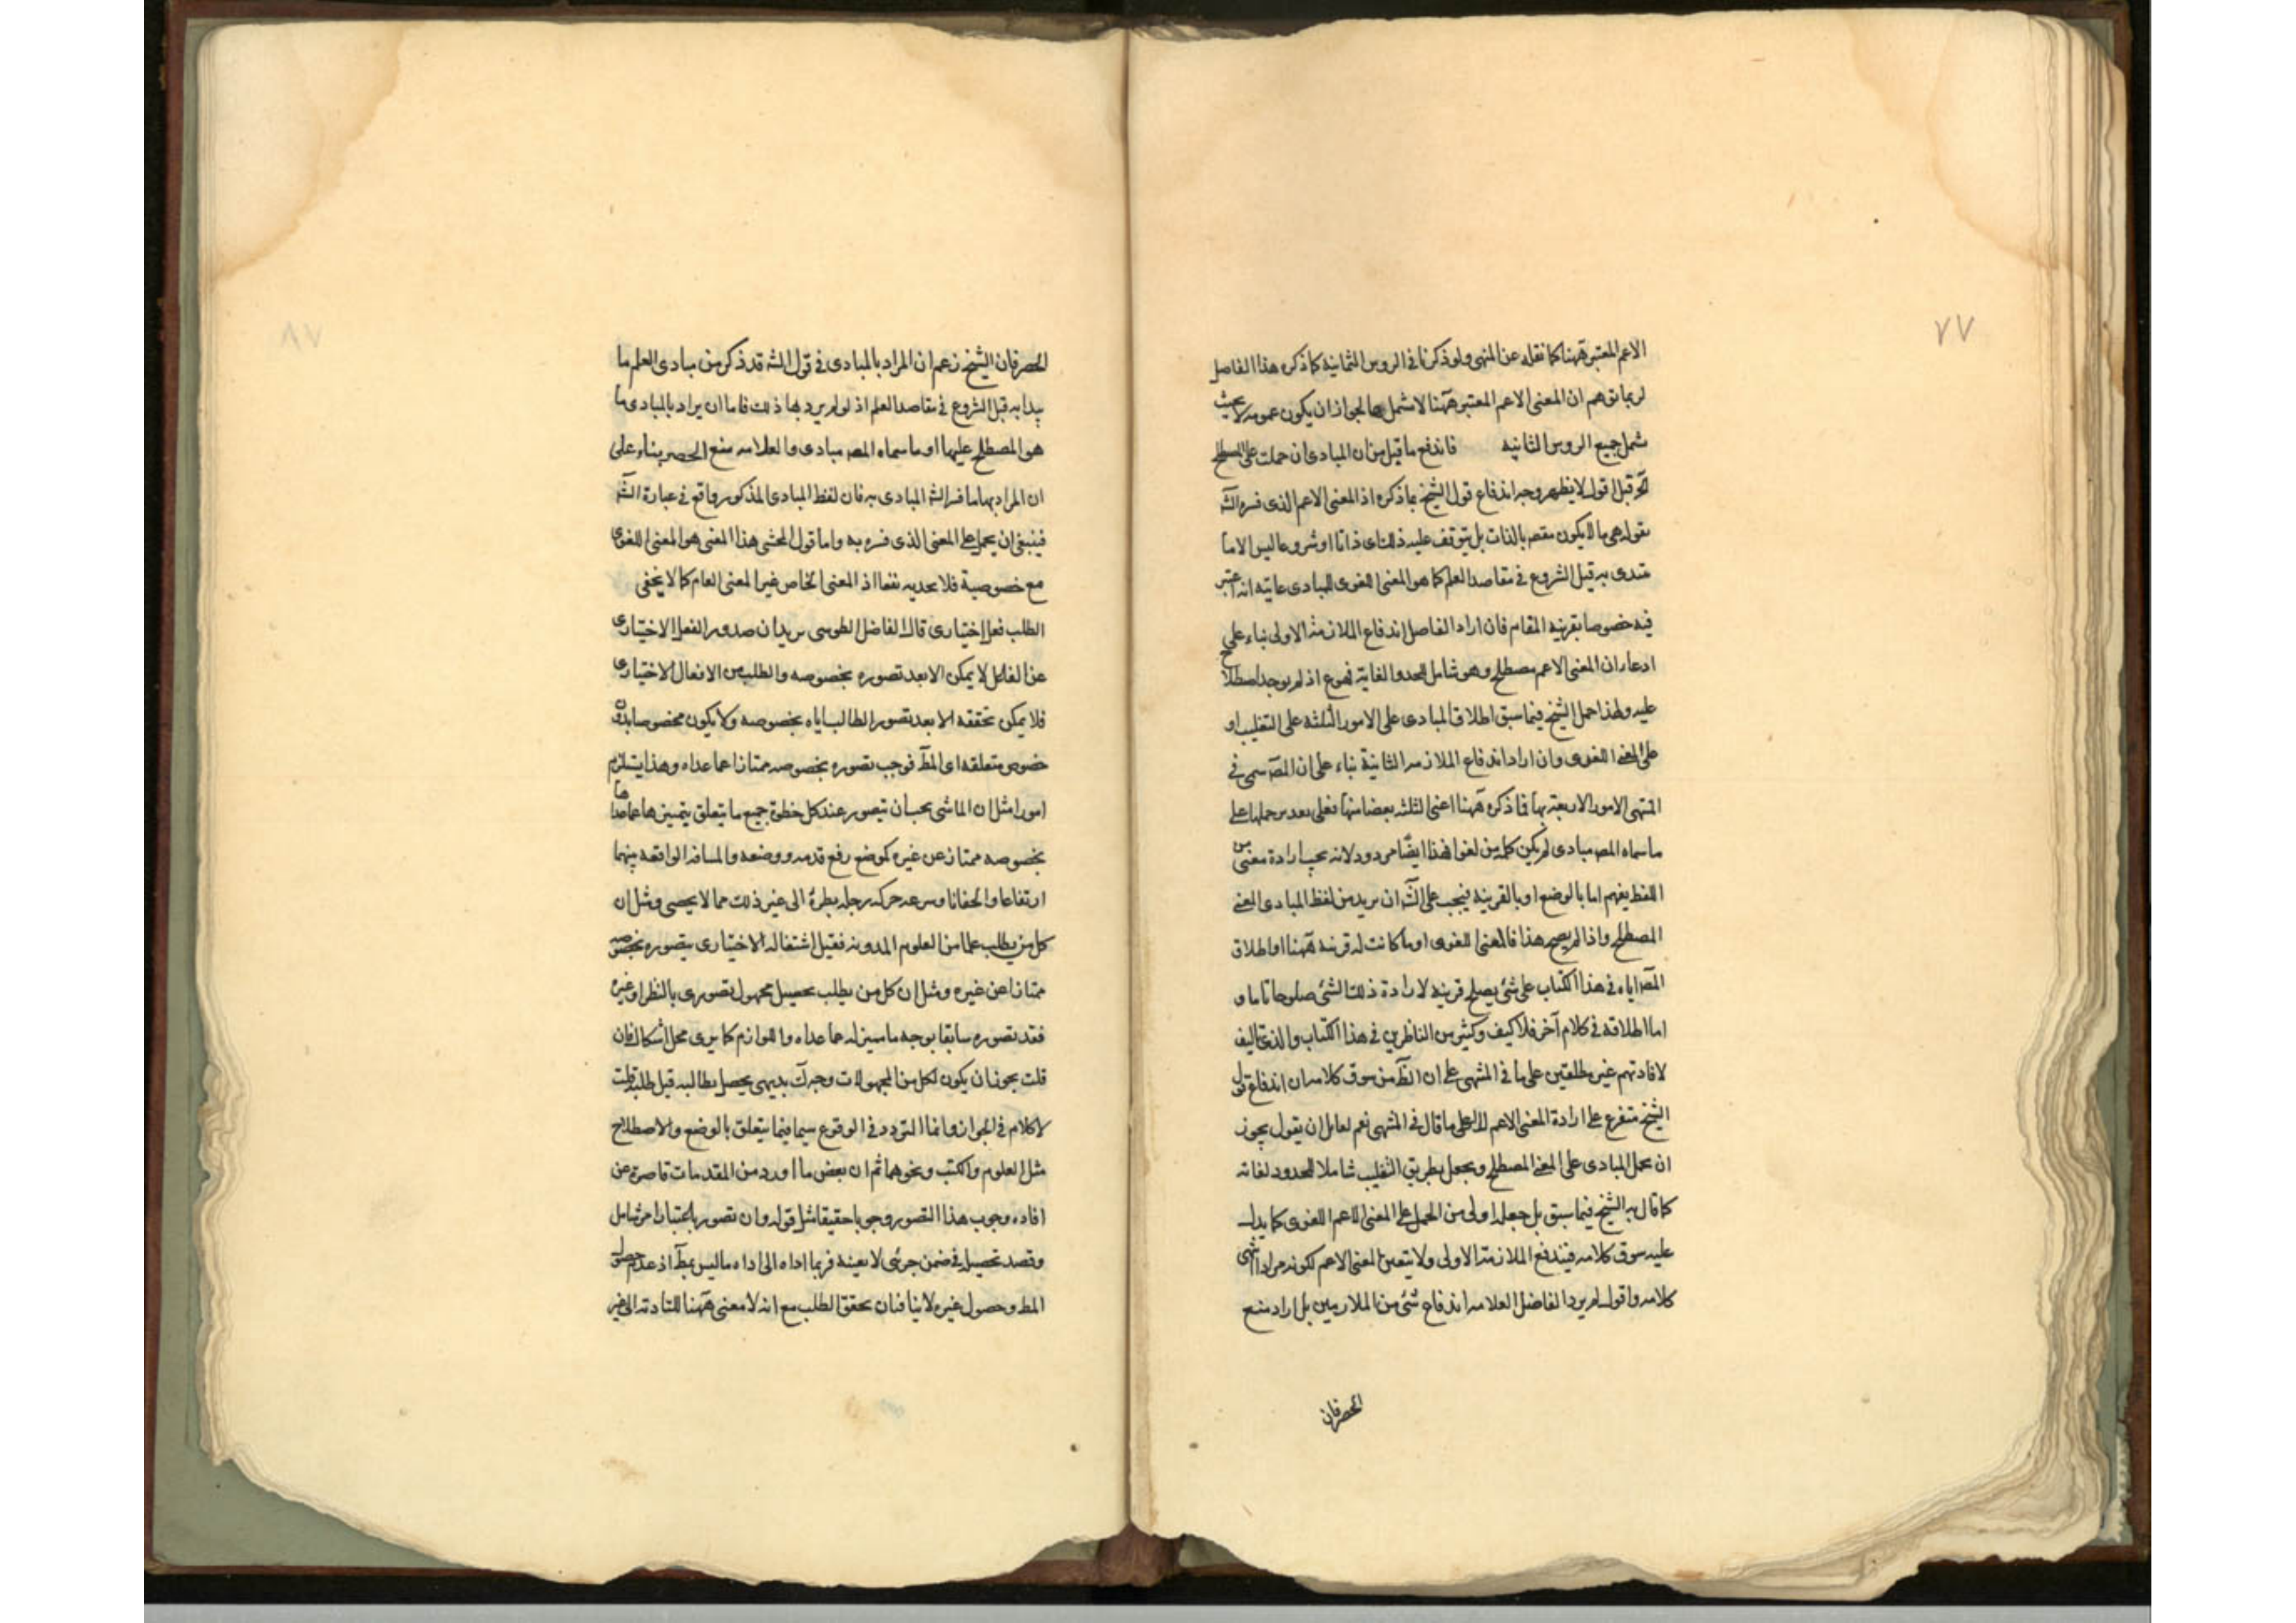 ٧٧
الاعم المعتبر ههنا كما نقله عن المنهى ولو ذكرنا فى الروس الثمانية كما ذكره هذا الفاضل
لربما توهم ان المعنى الاعم المعتبر ههنا لا شملها لجواز ان يكون عمومه لا بحيث
شمل جميع الروس الثانيه فاندفع ما قيل من ان المبادى ان حملت على المصطلح
آخر قيل اقول لا يظهر وجه اندفاع قول الشيخ بما ذكره اذ المعنى الاعم الذى فسره الشه
بقوله هى ما لا يكون مقصه بالذات بل يتوقف عليه ذلك اى ذاتا او شروعا ليس الا ما
يبتدى به قبل الشروع فى مقاصد العلم كما هو المعنى اللغوى للمبادى غايته انه اعتبر
فيه خصوصا بقرينه المقام فان اراد الفاضل اندفاع الملازمه الاولى بناء على
ادعاء ان المعنى الاعم مصطلح وهو شامل للحد والغاية فمنوع اذ لم يوجد اصطلاح
عليه ولهذا حمل الشيخ فيما سبق اطلاق المبادى على الامور الثلثه على التغليب او
على المعنى اللغوى وان اراد اندفاع الملازمه الثانية بناء على ان المصه سمى فى
المنتهى الامور الاربعة بها فما ذكره ههنا اعنى الثلثه بعضا منها فعلى بعد من حملها على
ما سماه المصه مبادى لم يكن كلمه من لغوا فهذا ايضا مردود لانه يجب ارادة معنى من
اللفظ يفهم اما بالوضع او بالقرينه فيجب على الشه ان يريد من لفظ المبادى المعنى
المصطلح واذا لم يصح هذا فالمعنى اللغوى او ما كانت له قرينه ههنا او اطلاق
المصه اياه فى هذا الكتاب على شئ يصلح قرينه لارادة ذلك الشئ صلوحا تاما و
اما اطلاقه فى كلام آخر فلا كيف وكثير من الناظرين فى هذا الكتاب والذى تاليف
لافادتهم غير مطلعين على ما فى المنتهى على ان الظ من سوق كلامه ان اندفاع قول
الشيخ متفرع على ارادة المعنى الاعم لا على ما قال فى المنتهى نعم لقائل ان يقول يجوز
ان يحمل المبادى على المعنى المصطلح ويجعل بطريق التغليب شاملا للحدود لغاته
كما قال به الشيخ فيما سبق بل جعله اولى من الحمل على المعنى الاعم اللغوى كما يدل
عليه سوق كلامه فيندفع الملازمه الاولى ولا يتعين المعنى الاعم لكونه مرادا انتهى
كلامه واقول لم يرد الفاضل العلامه اندفاع شئ من الملازمين بل اراد منع
الحصر فان
٧٨
الحصر فان الشيخ زعم ان المراد بالمبادى فى قول الشه قد ذكر من مبادى العلم ما
يبدا به قبل الشروع فى مقاصد العلم اذ لو لم يرد بها ذلك فاما ان يراد بالمبادى ما
هو المصطلح عليها او ما سماه المصه مبادى والعلامه منع الحصر بناء على
ان المراد بها ما فسر الشه المبادى به فان لفظ المبادى المذكور واقع فى عبارة الشه
فينبغى ان يحمل على المعنى الذى فسره به واما قول المحشى هذا المعنى هو المعنى اللغوى
مع خصوصية فلا يجديه نفعا اذ المعنى الخاص غير المعنى العام كما لا يخفى
الطلب فعل اختيارى قال الفاضل الطوسى يريد ان صدور الفعل الاختيارى
عن الفاعل لا يمكن الا بعد تصوره بخصوصه والطلب من الافعال الاختيارى
فلا يمكن تحققه الا بعد تصور الطالب اياه بخصوصه ولا يكون مخصوصا بدون
خصوص متعلقه اى المط فوجب تصوره بخصوصه ممتازا عما عداه وهذا يستلزم
امورا مثل ان الماشى يجب ان يتصور عند كل خطوة جميع ما يتعلق بتميزها عما عداها
بخصوصه ممتاز عن غيره كموضع رفع قدمه ووضعه والمسافه الواقعه بينهما
ارتفاعا وانخفاضا وسرعه حركه رجله بطؤ الى غير ذلك مما لا يحصى ومثل ان
كل من يطلب علما من العلوم المدونه فقبل اشتغاله الاختيارى يتصوره بخصوصه
ممتازا عن غيره ومثل ان كل من يطلب تحصيل مجهول تصورى بالنظر او غيره
فقد تصوره سابقا بوجه ما يميزه عما عداه واللوازم كما يرى محل اشكال فان
قلت يجوز ان يكون لكل من المجهولات وجه بديهى يحصل بطالبه قبل طلبه قلت
لا كلام فى الجواز وانما التردد فى الوقوع سيما فيما يتعلق بالوضع والاصطلاح
مثل العلوم والكتب ونحوهما ثم ان بعض ما اورد من المقدمات قاصرة عن
افاده وجوب هذا التصور وجوبا حقيقا مثل قوله وان تصور باعتبار امر شامل
وقصد تحصيل فى ضمن جزئى لا بعينه فربما اداه الى اداه ما ليس بمط اذ عدم حصول
المط وحصول غيره لا ينافيان تحقق الطلب مع انه لا معنى ههنا للتادته الى غير